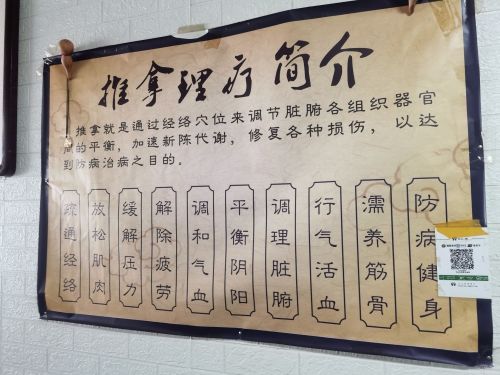 推拿理疗简介
推拿就是通过经络穴位来调节脏腑各组织器官
间的平衡，加速新陈代谢，修复各种损伤，以达
到防病治病之目的。
疏通经络
放松肌肉
缓解压力
解除疲劳
调和气血
平衡阴阳
调理脏腑
行气活血
濡养筋骨
防病健身